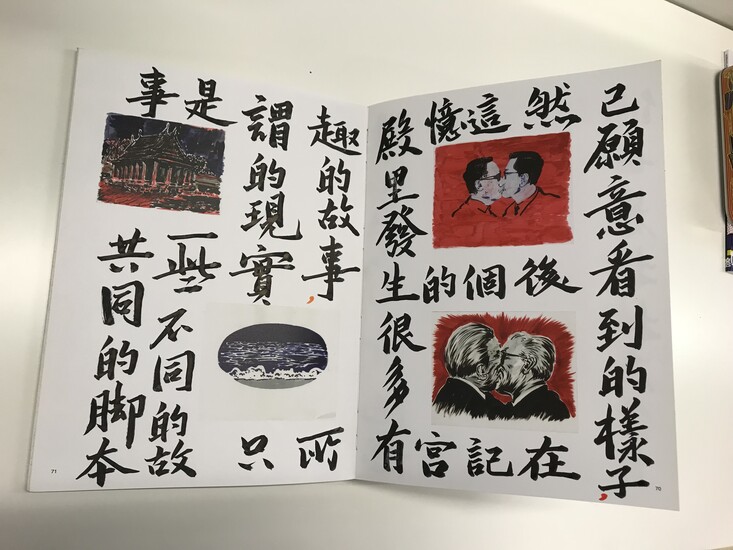 己願意看到的樣子,
然後在
這個記
憶的宮
殿里發生很多有
70
趣的故事,所
謂的現實只
是一些不同的故
事共同的脚本
71